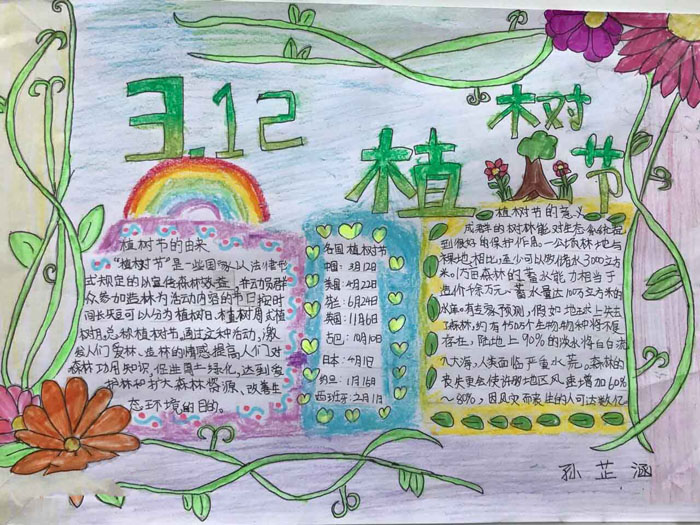 3.12
植树节
植树节的由来
"植树节"是一些国家以法律形
式规定的以宣传森林效益,并动员群
众参加造林为活动内容的节日按时
间长短可以分为植树日、植树周或植
树月,总称植树节。通过这种活动,激
发人们爱林、造林的情感、提高人们对
森林功用知识,促进国土绿化,达到爱
护林和扩大森林资源、改善生
态环境的目的。
各国植树节
中国:3月12日
美国:4月22日
4月22日
6月24日
英国:11月6日
古巴:10月10日
日本:4月1日
约旦:1月16日
西班牙:2月1日
植树节的意义
成熟的树林能对生态系统起
到很好的保护作用。一公顷林地与
裸地相比,至少可以多储水3000立方
米。1万亩森林的蓄水能力相当于
造价千余万元、蓄水量达100万立方米的
水库。有专家预测,假如地球上失去
了森林,约有450万个生物物种将不复
存生,陆地上90%的淡水将白白流
入大海,人类面临严重水荒。森林的
丧失更会使许多地区风速增加60%
~80%,因风灾而丧生的人可达数亿
孙芷涵